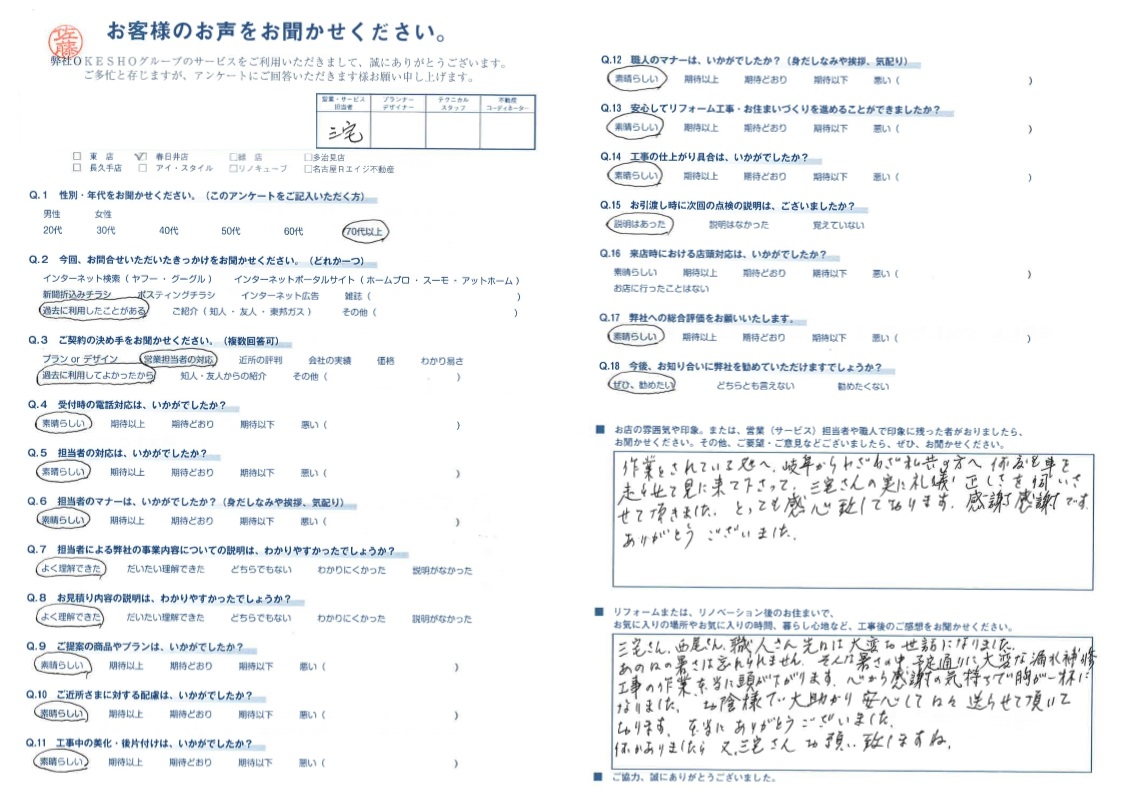 佐藤
お客様のお声をお聞かせください。
弊社OKESHOグループのサービスをご利用いただきまして、誠にありがとうございます。
ご多忙と存じますが、アンケートにご回答いただきます様お願い申し上げます。
営業・サービス担当者 プランナーデザイナー テクニカルスタッフ 不動産コーディネーター
三宅
□ 東 店 ☑ 春日井店 □緑 店 □多治見店
□ 長久手店 □ アイ・スタイル □リノキューブ □名古屋Rエイジ不動産
Q.1 性別・年代をお聞かせください。（このアンケートをご記入いただく方）
男性 女性
20代 30代 40代 50代 60代 70代以上
Q.2 今回、お問合せいただいたきっかけをお聞かせください。（どれか一つ）
インターネット検索（ ヤフー ・ グーグル ） インターネットポータルサイト（ ホームプロ ・ スーモ ・ アットホーム ）
新聞折込みチラシ ポスティングチラシ インターネット広告 雑誌（ ）
過去に利用したことがある ご紹介（ 知人 ・ 友人 ・ 東邦ガス ） その他（ ）
Q.3 ご契約の決め手をお聞かせください。（複数回答可）
プラン or デザイン 営業担当者の対応 近所の評判 会社の実績 価格 わかり易さ
過去に利用してよかったから 知人・友人からの紹介 その他（ ）
Q.4 受付時の電話対応は、いかがでしたか？
素晴らしい 期待以上 期待どおり 期待以下 悪い（ ）
Q.5 担当者の対応は、いかがでしたか？
素晴らしい 期待以上 期待どおり 期待以下 悪い（ ）
Q.6 担当者のマナーは、いかがでしたか？（身だしなみや挨拶、気配り）
素晴らしい 期待以上 期待どおり 期待以下 悪い（ ）
Q.7 担当者による弊社の事業内容についての説明は、わかりやすかったでしょうか？
よく理解できた だいたい理解できた どちらでもない わかりにくかった 説明がなかった
Q.8 お見積り内容の説明は、わかりやすかったでしょうか？
よく理解できた だいたい理解できた どちらでもない わかりにくかった 説明がなかった
Q.9 ご提案の商品やプランは、いかがでしたか？
素晴らしい 期待以上 期待どおり 期待以下 悪い（ ）
Q.10 ご近所さまに対する配慮は、いかがでしたか？
素晴らしい 期待以上 期待どおり 期待以下 悪い（ ）
Q.11 工事中の美化・後片付けは、いかがでしたか？
素晴らしい 期待以上 期待どおり 期待以下 悪い（ ）
Q.12 職人のマナーは、いかがでしたか？（身だしなみや挨拶、気配り）
素晴らしい 期待以上 期待どおり 期待以下 悪い（ ）
Q.13 安心してリフォーム工事・お住まいづくりを進めることができましたか？
素晴らしい 期待以上 期待どおり 期待以下 悪い（ ）
Q.14 工事の仕上がり具合は、いかがでしたか？
素晴らしい 期待以上 期待どおり 期待以下 悪い（ ）
Q.15 お引渡し時に次回の点検の説明は、ございましたか？
説明はあった 説明はなかった 覚えていない
Q.16 来店時における店頭対応は、いかがでしたか？
素晴らしい 期待以上 期待どおり 期待以下 悪い（ ）
お店に行ったことはない
Q.17 弊社への総合評価をお願いいたします。
素晴らしい 期待以上 期待どおり 期待以下 悪い（ ）
Q.18 今後、お知り合いに弊社を勧めていただけますでしょうか？
ぜひ、勧めたい どちらとも言えない 勧めたくない
■ お店の雰囲気や印象。または、営業（サービス）担当者や職人で印象に残った者がおりましたら、
お聞かせください。その他、ご要望・ご意見などございましたら、ぜひ、お聞かせください。
作業をされている処へ、岐阜からわざわざ私共の方へ 何度も車を
走らせて見に来て下さって、三宅さんの実に礼儀正しさを伺いさ
せて頂きました。とっても感心致しております。感謝感謝です。
ありがとう ございました。
■ リフォームまたは、リノベーション後のお住まいで、
お気に入りの場所やお気に入りの時間、暮らし心地など、工事後のご感想をお聞かせください。
三宅さん、西尾さん、職人さん 先日は大変お世話になりました。
あの日の暑さは忘れられません。そんな暑さの中 予定通りに大変な漏水補修
工事の作業 本当に頭が下がります。心から感謝の気持ちで胸が一杯に
なりました。お陰様で大助かり 安心して日々送らせて頂いて
おります。本当に ありがとうございました。
何かありましたら 又、三宅さん お願い致しますね。
■ ご協力、誠にありがとうございました。